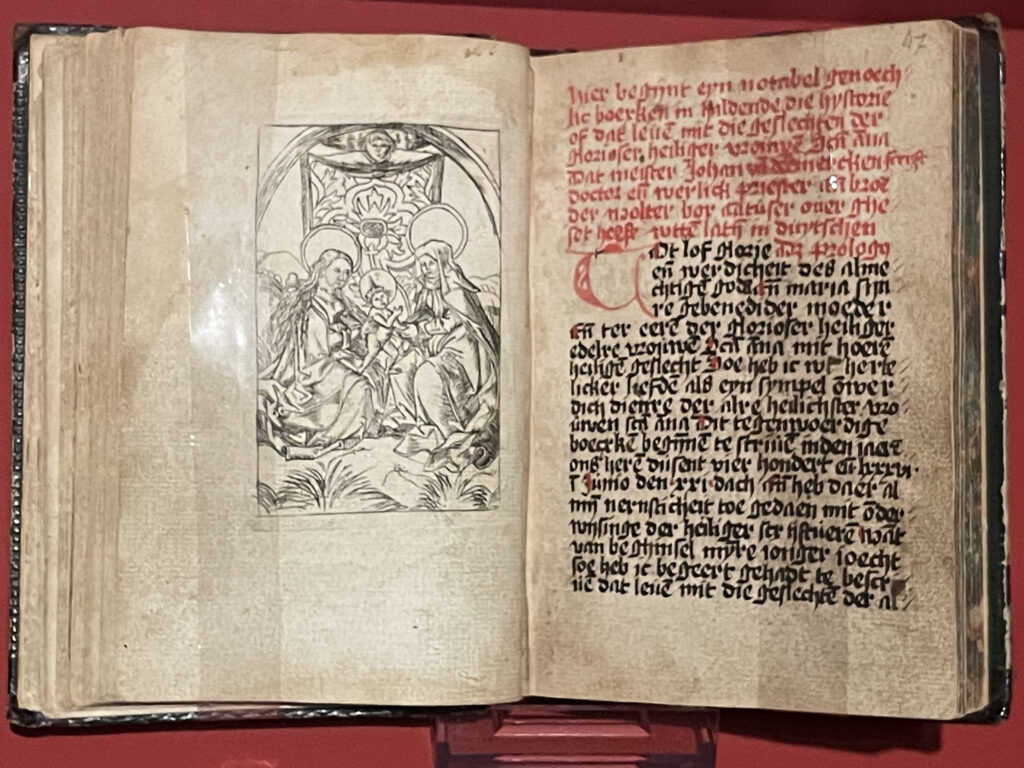 47
Hier begynt eyn notabel genoech
lic boexken in haldende die hystorie
of dat leuē mit die geslechten der
glorioser heiliger vrouwē Scā āna
Dat meister Johan
doctor eñ werlick priester
der
set heeft wttē latin in duytschen
Ot lof glorie Die prologus
eñ werdicheit des alme
chtigē godes eñ maria sijn
re gebenedider moeder
Eñ ter eerē der glorioser heiliger
edelre vrouwē Scā āna mit hoerē
heiligē geslecht Soe heb ic wt herte
licker liefden als eyn sympel onwer
dich dienre der alre heilichster vro
uwen scā āna Dit tegenwoerdige
boexkē begynnē te scriuē inden iaer
ons herē dusent vier hondert eñ lxxxvi
ī Junio den xxi dach Eñ heb daer al
mijn nernsticheit toe gedaen mit onder
wijsinge der heiliger scriftuerē Wāt
van beghinsel mijnre ionger ioecht
soe heb ic begeert gehadt te bescr
uē dat leuē mit die geslechtē der al